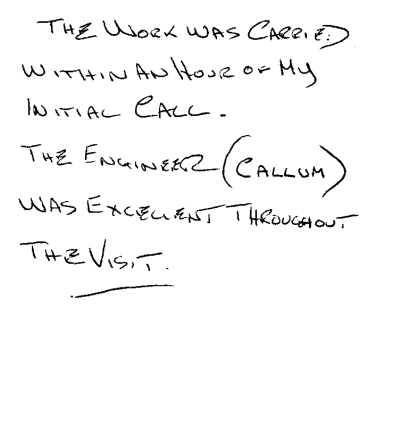 THE WORK WAS CARRIED
WITHIN AN HOUR OF MY
INITIAL CALL.
THE ENGINEER (CALLUM)
WAS EXCELLENT THROUGHOUT
THE VISIT.